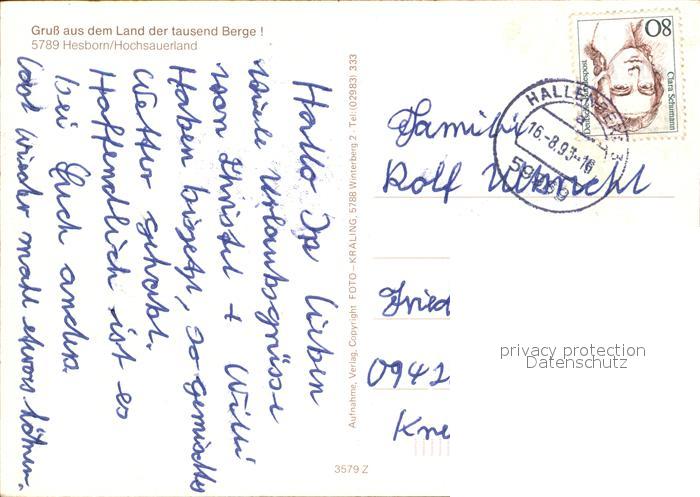 Gruß aus dem Land der tausend Berge !
5789 Hesborn/Hochsauerland
Hallo Ihr lieben
viele Urlaubsgrüsse
von Christel + Willi
Haben bisjetzt, so gemischtes
Wetter gehabt.
Hoffendlich ist es
bei Euch anders.
Last wieder mall etwas hören.
Aufnahme, Verlag, Copyright FOTO–KRALING, 5788 Winterberg 2 Tel: (02983) 333
3579 Z
80
Clara Schumann
Deutsche Bundespost
HALLENBERG
16.-8.93-16
59969
Familie
Rolf Ulbricht
Fried
0942
Kne
privacy protection
Datenschutz